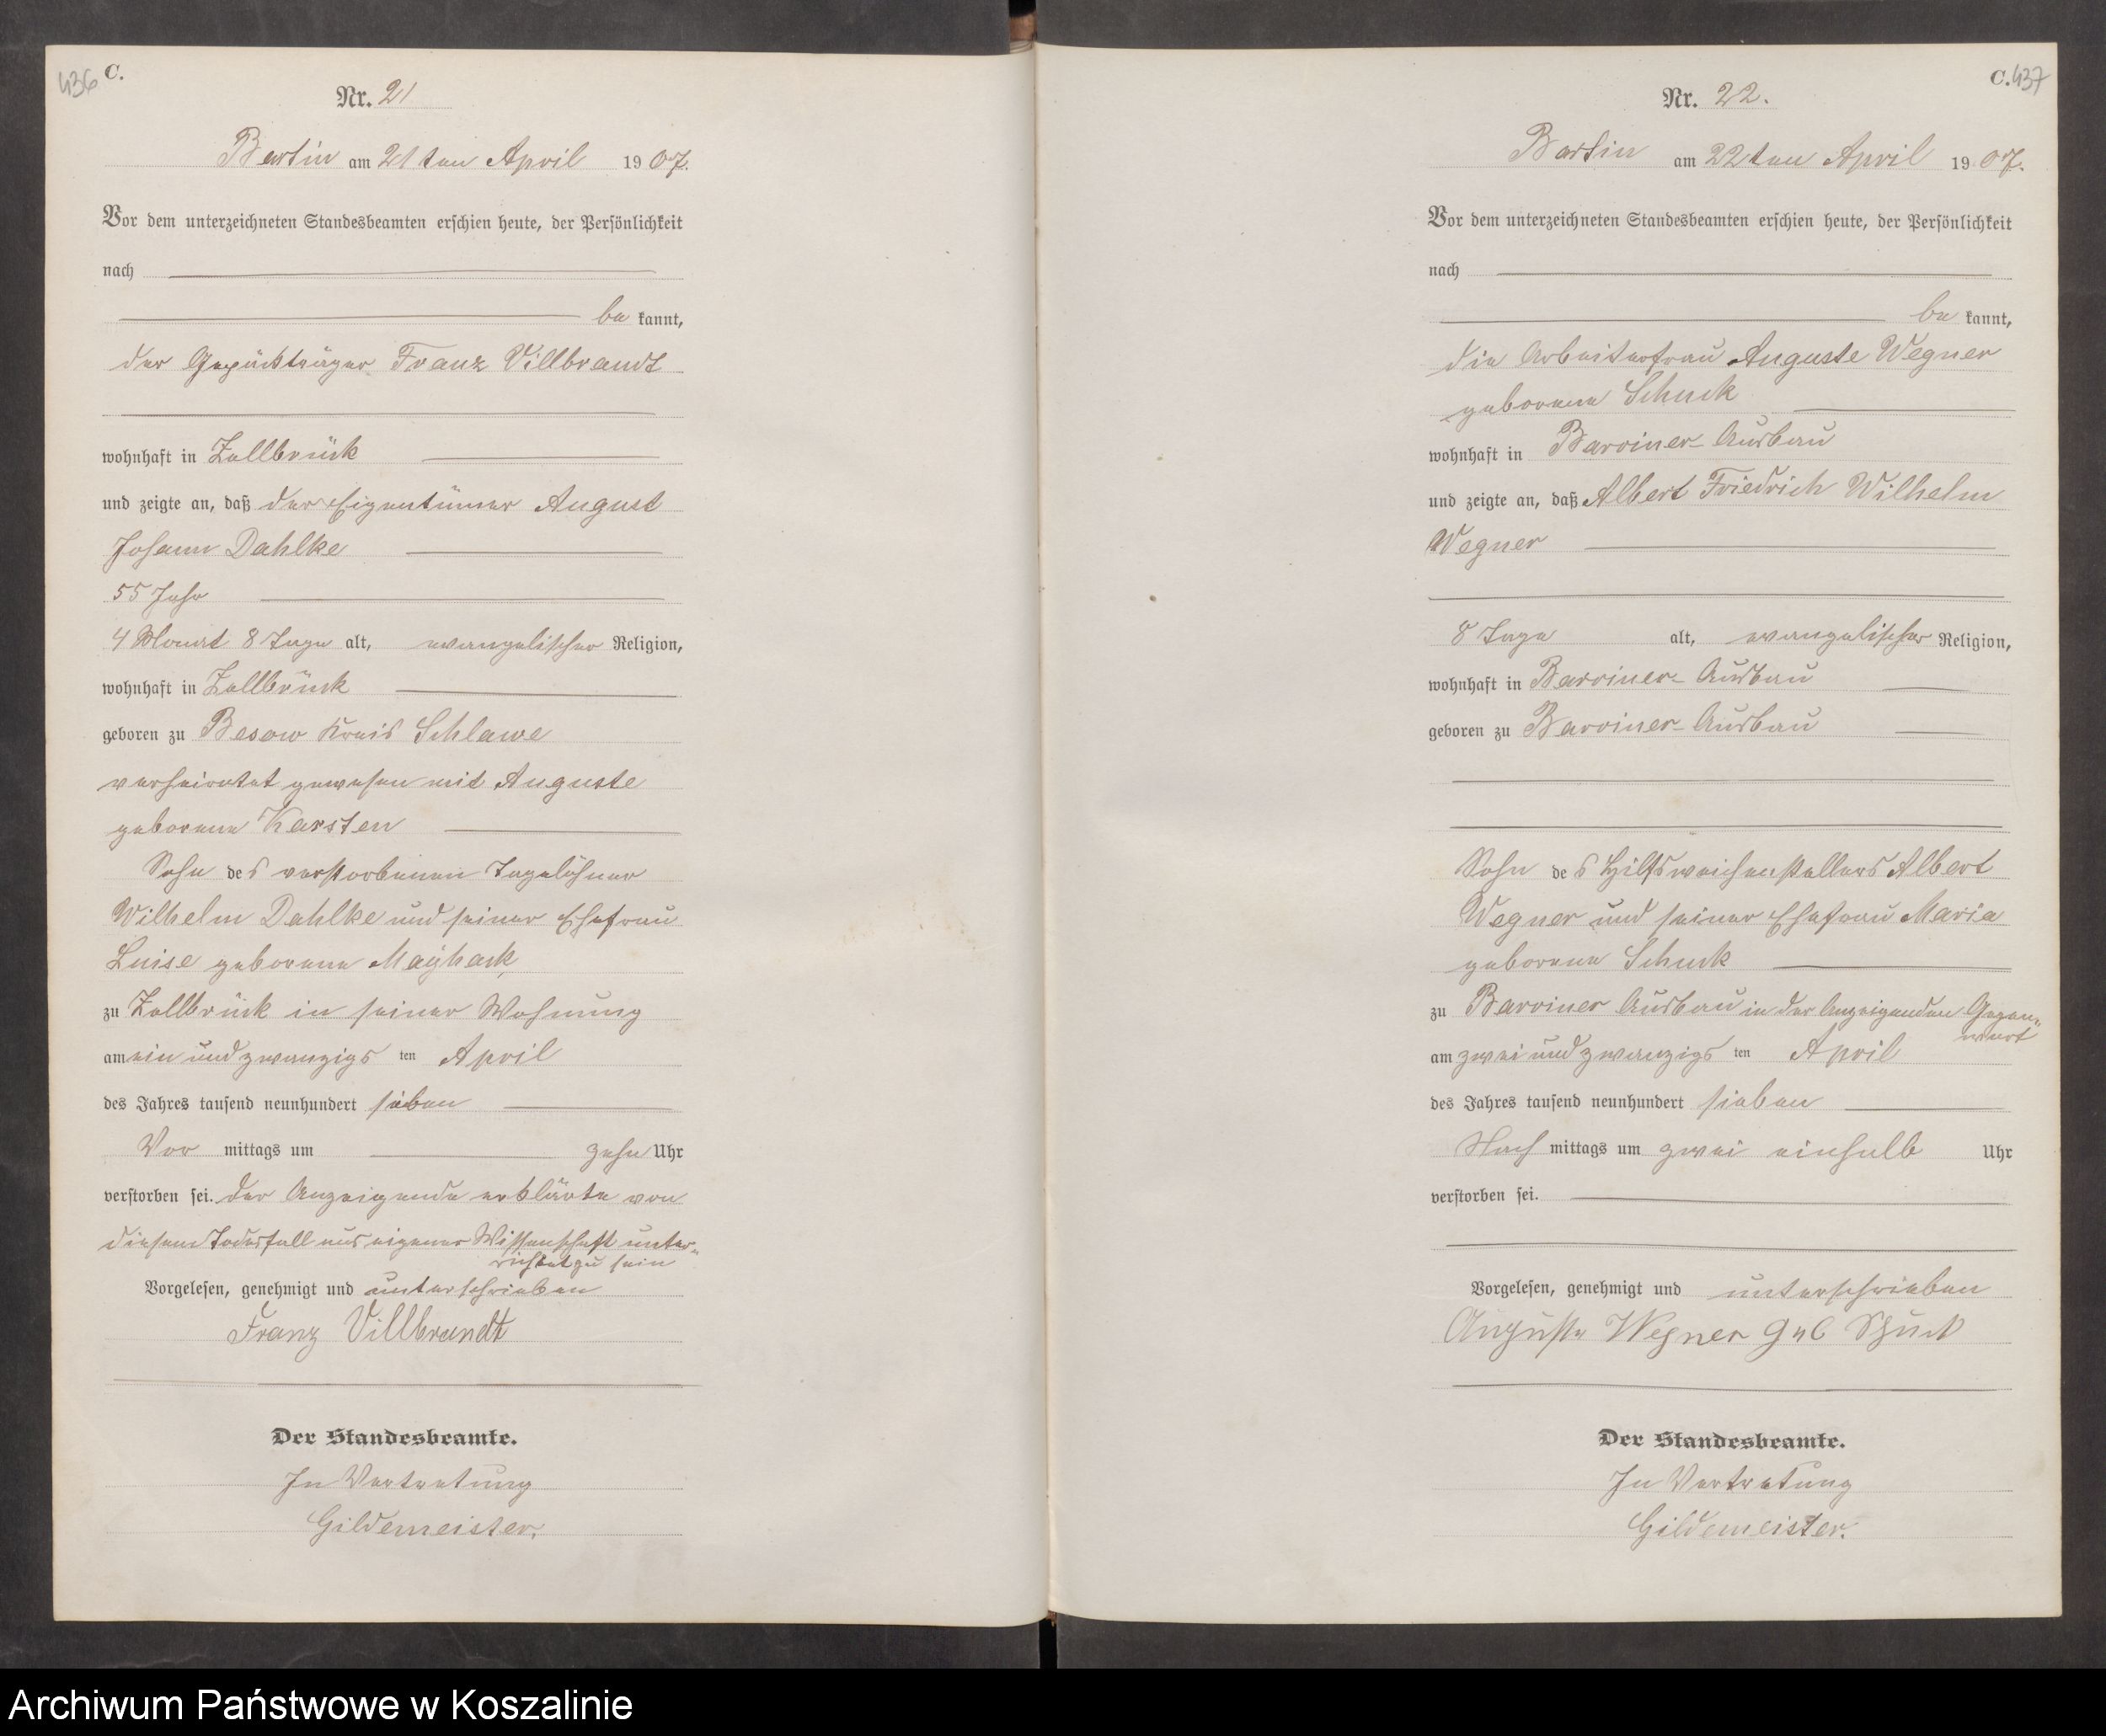 436 C.
Nr. 21
Bartin am 21ten April 1907.
Vor dem unterzeichneten Standesbeamten erschien heute, der Persönlichkeit
nach
be kannt,
der Gepäckträger Franz Villbrandt
wohnhaft in Zollbrück
und zeigte an, daß der Eigentümer August
Johann Dahlke
55 Jahr
4 Monat 8 Tage alt, evangelischer Religion,
wohnhaft in Zollbrück
geboren zu Besow Kreis Schlawe
verheiratet gewesen mit Auguste
geborene Karsten
Sohn des verstorbenen Tagelöhner
Wilhelm Dahlke und seiner Ehefrau
Luise geborene
zu Zollbrück in seiner Wohnung
am ein und zwanzigs ten April
des Jahres tausend neunhundert sieben
Vor mittags um zehn Uhr
verstorben sei. Der Anzeigende erklärte von
diesem Todesfall aus eigener Wissenschaft unter-
richtet zu sein
Vorgelesen, genehmigt und unterschrieben
Franz Villbrandt
Der Standesbeamte.
In Vertretung
Gildemeister.
C. 437
Nr. 22.
Bartin am 22ten April 1907.
Vor dem unterzeichneten Standesbeamten erschien heute, der Persönlichkeit
nach
be kannt,
die Arbeiterfrau Auguste Wegner
geborene Schuck
wohnhaft in Barviner-Ausbau
und zeigte an, daß Albert Friedrich Wilhelm
Wegner
8 Tage alt, evangelischer Religion,
wohnhaft in Barviner-Ausbau
geboren zu Barviner-Ausbau
Sohn des Hilfsweichenstellers Albert
Wegner und seiner Ehefrau Maria
geborene Schuck
zu Barviner Ausbau in der Anzeigenden Gegen-
wart
am zwei und zwanzigs ten April
des Jahres tausend neunhundert sieben
Nach mittags um zwei einhalb Uhr
verstorben sei.
Vorgelesen, genehmigt und unterschrieben
Auguste Wegner geb Schuck
Der Standesbeamte.
In Vertretung
Gildemeister.
Archiwum Państwowe w Koszalinie